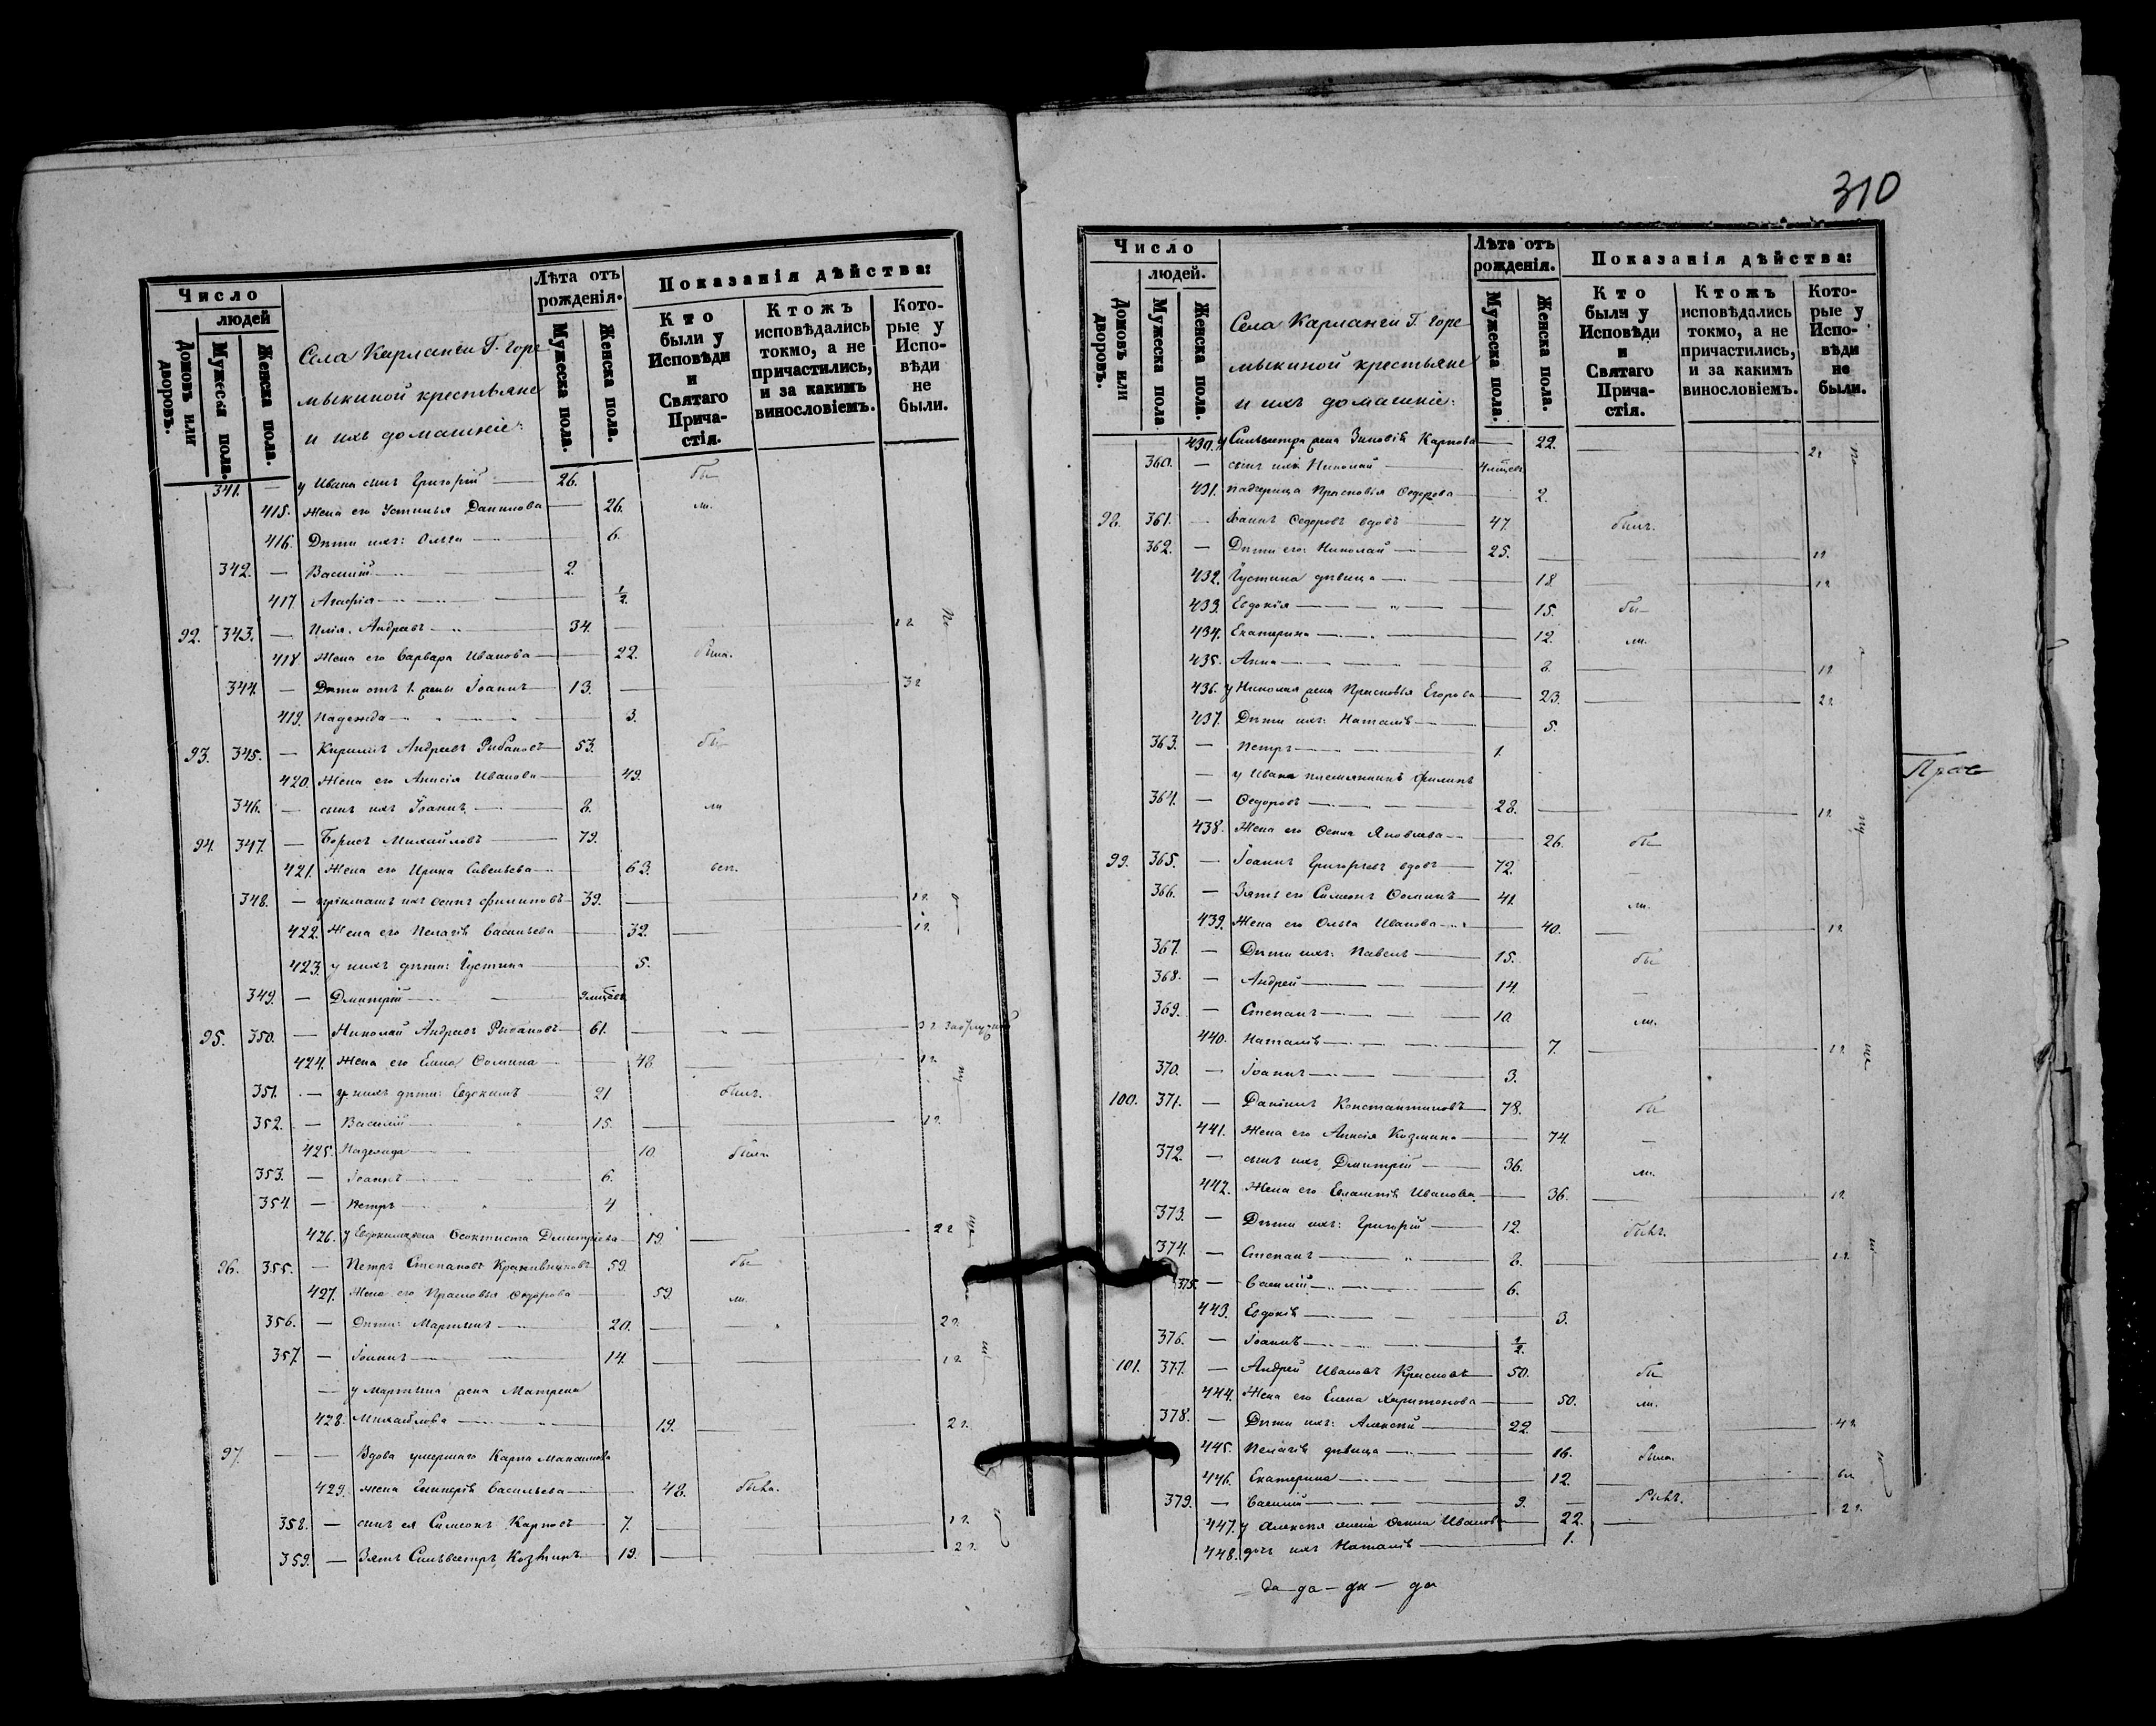 Число
людей
Домовъ или дворовъ.
Мужеска пола.
Женска пола.
Села Карланги Г. Горе
мыкиной крестьяне
и ихъ домашніе:
Лѣта отъ рожденія.
Мужеска пола.
Женска пола.
Показанія дѣйства:
Кто были у Исповѣди и Святаго Прича-стія.
Ктожъ исповѣдались токмо, а не причастились, и за какимъ винословіемъ.
Кото-рые у Испо-вѣди не были.
341. — у Ивана сынъ Григорій 26. бы
415. Жена его Устинья Данилова 26. ли.
416. Дѣти ихъ: Ольга 6.
342. — Василій 2.
417 Агафія ½
92. 343. — Илія Андреевъ 34. 1 г.
418 Жена его Варвара Иванова 22. была.
344. — Дѣти отъ 1. жены Іоаннъ 13. 3 г
419. Надежда 3.
93. 345. — Кириллъ Андреевъ Рибановъ 53. бы
420. Жена его Анисія Иванова 49.
346. — сынъ ихъ Іоаннъ 8. ли
94. 347. — Борисъ Михайловъ 79.
421. Жена его Ирина Савельева 63.
348. — пріимышъ ихъ Осипъ Филиповъ 39. 1 г.
422. Жена его Пелагія Васильева 32. 1 г.
423. у нихъ дѣти: Іустина 5.
349. — Дмитрій
95. 350. — Николай Андреевъ Рибановъ 61.
424. Жена его Елена Ѳомина 48. 1 г.
351. — у нихъ дѣти: Евдокимъ 21 былъ.
352. — Василій 15. 1 г.
425. Надежда 10. была.
353. — Іоаннъ 6.
354. — Петръ 4
426. у Евдокима жена Ѳеоктиста Дмитріева 19. 2 г
96. 355. — Петръ Степановъ Крапивниковъ 59. бы
427. Жена его Прасковья Ѳедорова 59. ли.
356. — Дѣти: Мартинъ 20. 2 г.
357. — Іоаннъ 14. 1 г.
— у Мартына жена Матрена
428. Михайлова 19. 2 г.
97. — — Вдова умершаго Карпа Максимова
429. жена Гликерія Васильева 48. была.
358. — сынъ ея Симеонъ Карповъ 7. 1 г.
359. — Зять Сильвестръ Козминъ 19. 2 г.
310
Число
людей.
Домовъ или дворовъ.
Мужеска пола
Женска пола.
Села Карланги Г. Горе
мыкиной крестьяне
и ихъ домашніе:
Лѣта отъ рожденія.
Мужеска пола.
Женска пола.
Показанія дѣйства:
Кто были у Исповѣди и Святаго Прича-стія.
Ктожъ исповѣдались токмо, а не причастились, и за какимъ винословіемъ.
Кото-рые у Испо-вѣди не были.
430. у Сильвестра жена Зиновія Карпова 22. 2 г
360. — сынъ ихъ Николай
431. падчерица Прасковья Ѳедорова 2.
98. 361. — Іоаннъ Ѳедоровъ вдовъ 47. былъ.
362. — Дѣти его: Николай 25. 1 г
432. Іустина дѣвица 18 1 г
433. Евдокія 15. бы
434. Екатерина 12. ли.
435. Анна 8. 1 г
436. у Николая жена Прасковья Егорова 23. 2 г
437. Дѣти ихъ: Наталія 5.
363. — Петръ 1.
— у Ивана племянникъ Филипъ
364. — Ѳедоровъ 28. 1 г.
438. Жена его Ѳекла Яковлева 26. бы
99. 365. — Іоаннъ Григорьевъ вдовъ 72.
366. — Зять его Симеонъ Ѳоминъ 41. ли.
439. Жена его Ольга Иванова 40. 1 г.
367. — Дѣти ихъ: Павелъ 15. бы
368. — Андрей 14.
369. — Степанъ 10. ли.
440. Наталія 7. 1 г.
370. — Іоаннъ 3.
100. 371. — Даніилъ Константиновъ 78. бы
441. Жена его Анисія Козмина 74.
372. — сынъ ихъ Дмитрій 36. ли.
442. Жена его Евлампія Иванова 36. 1 г.
373. — Дѣти ихъ: Григорій 12. былъ.
374. — Степанъ 8. 1 г.
375. — Василій 6.
443. Евдокія 3.
376. — Іоаннъ ½
101. 377. — Андрей Ивановъ Красновъ 50. бы
444. Жена его Елена Харитонова 50. ли.
378. — Дѣти ихъ: Алексѣй 22. 4 г.
445. Пелагія дѣвица 16. была.
446. Екатерина 12.
379. — Василій 9. былъ.
447. у Алексѣя жена Ѳекла Иванова 22. 2 г.
448. дочь ихъ Наталія 1.
да — да — да — да